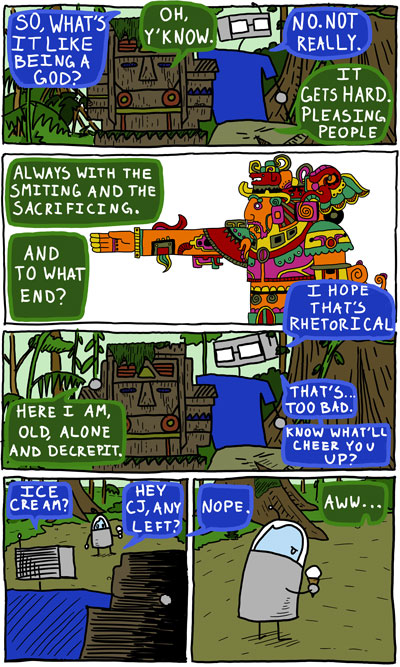 SO, WHAT'S
IT LIKE
BEING A
GOD?
OH,
Y'KNOW.
NO. NOT
REALLY.
IT
GETS HARD.
PLEASING
PEOPLE
ALWAYS WITH THE
SMITING AND THE
SACRIFICING.
AND
TO WHAT
END?
I HOPE
THAT'S
RHETORICAL
HERE I AM,
OLD, ALONE
AND DECREPIT.
THAT'S...
TOO BAD.
KNOW WHAT'LL
CHEER YOU
UP?
ICE
CREAM?
HEY
CJ, ANY
LEFT?
NOPE.
AWW...